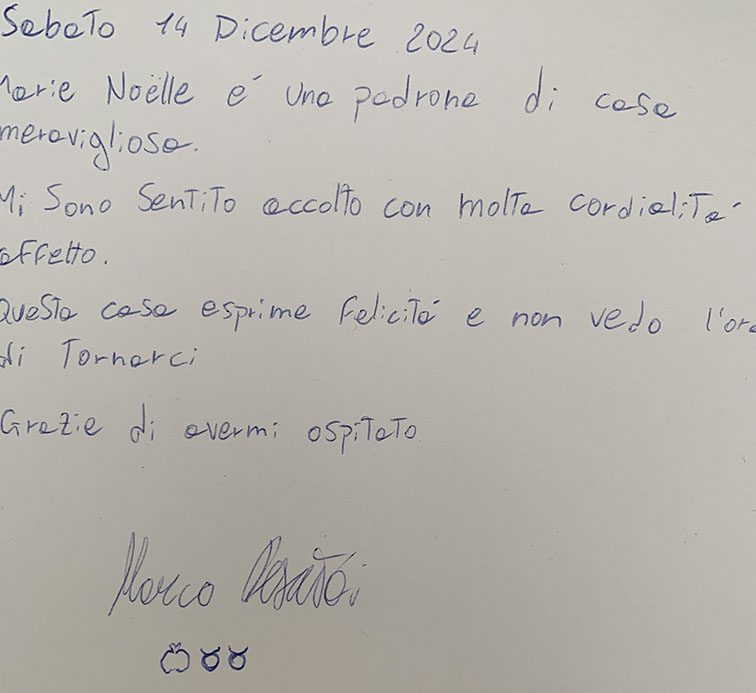 Sabato 14 Dicembre 2024
Marie Noëlle é una padrona di casa
meravigliosa.
Mi sono sentito accolto con molta cordialitá
affetto.
Questa casa esprime felicitá e non vedo l'ora
di tornarci
Grazie di avermi ospitato
Marco